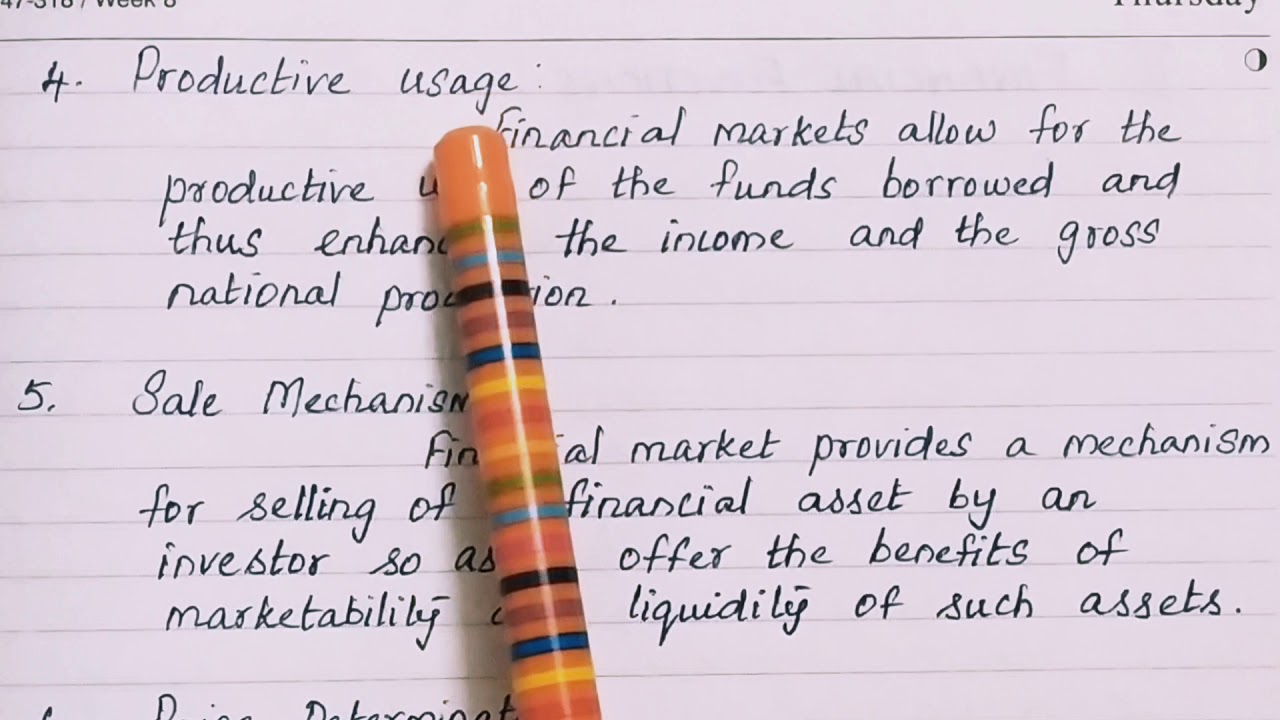 47-318 / Week 8
Thursday
4. Productive usage:
Financial markets allow for the
productive of the funds borrowed and
thus the income and the gross
national
5. Sale Mechanism
market provides a mechanism
for selling of financial asset by an
investor so as offer the benefits of
marketability liquidity of such assets.